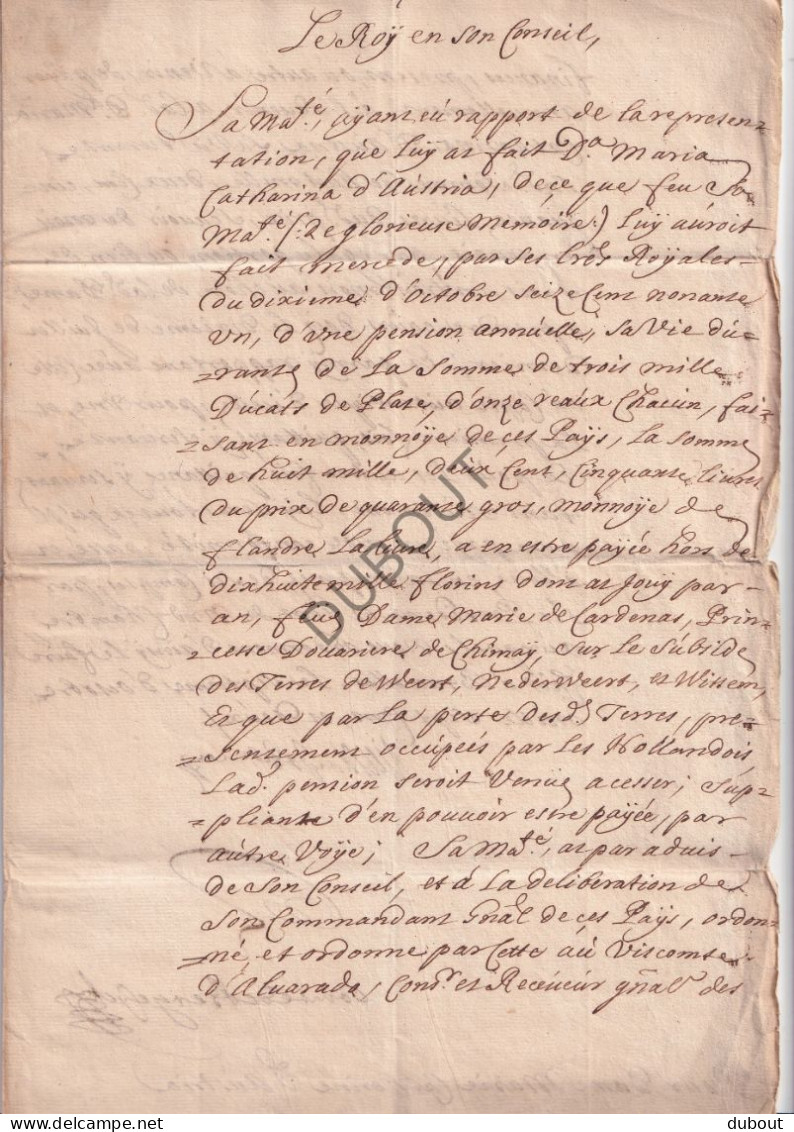 Le Roÿ en son Conseil,
Sa Ma.té, aÿant eü rapport de la represen=
tation, que luÿ at fait D.a Maria
Catharina d'Aústria, de ce que feu Sa
Ma.té (: de glorieuse Memoire :) luÿ aúroit
fait mercede, par ses lrēs Roÿales
du dixieme d'Octobre seize Cent nonante
un, d'úne pension annúelle, sa vie dú=
=rante de la somme de trois mille
Dúcats de Plate, d'onze reaúx Chacún, fai=
=sant en monnoÿe de ces Paÿs, la somme
de huit mille, deúx Cent, Cinquante livres
du prix de quarante gros, monnoÿe de
flandre la livre, a en estre paÿée hors de
dixhuite mille florins dont at joúÿ par
an, feue Dame Marie de Cardenas, Prin=
=cesse Doúariere de Chimaÿ, sur le Súbside
des Terres de Weert, Nederweert, et Wissem,
Et que par la perte des d.s Terres, pre=
=sentement occúpées par les Hollandois
lad.e pension seroit venúe a cesser; súp=
=pliante d'en poúvoir estre paÿée, par
aútre voÿe; Sa Ma.té, at par aduis
de son Conseil, et á la deliberation de
son Commandant gñal de ces Paÿs, ordon=
=né, et ordonne par cette aú Viscomte
d'Aluarado, Cons.r et Receueur gñal des
DUBOUT
dubout